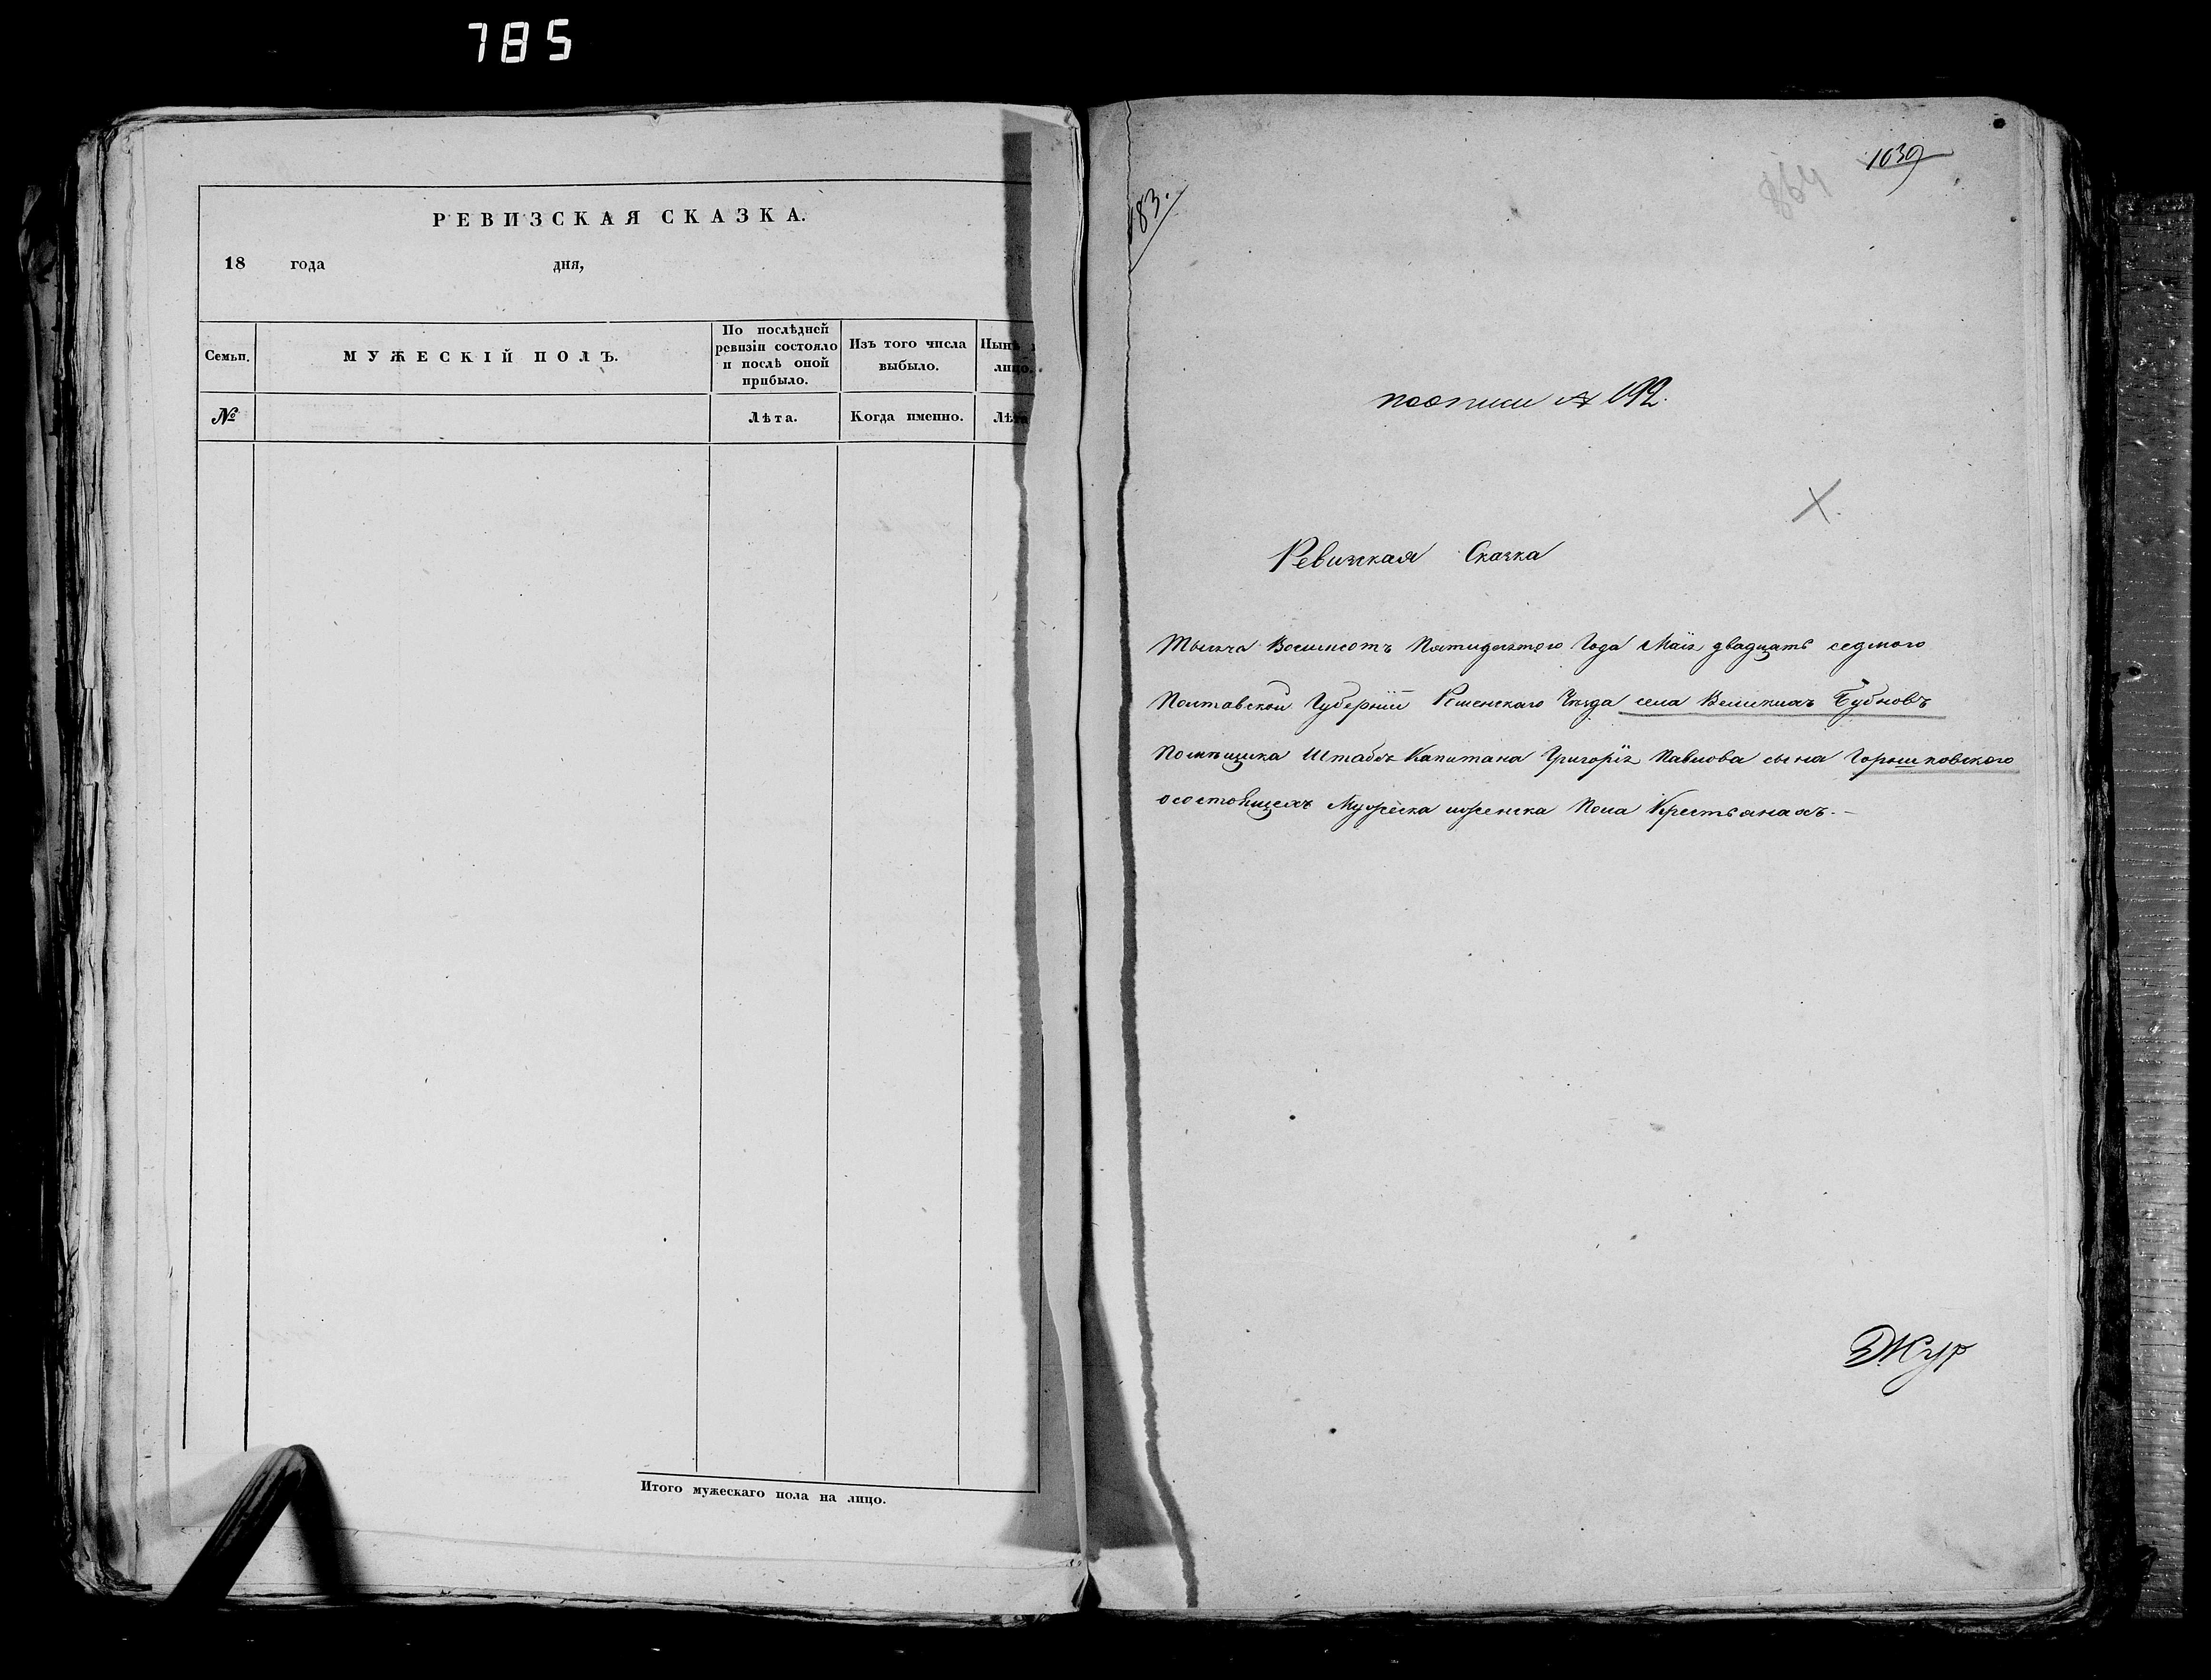 785
РЕВИЗСКАЯ СКАЗКА.
18 года дня,
Семьи.
МУЖЕСКІЙ ПОЛЪ.
По послѣдней
ревизіи состояло
и послѣ оной
прибыло.
Изъ того числа
выбыло.
Нынѣ
лицо.
№
Лѣта.
Когда именно.
Лѣта
Итого мужескаго пола на лицо.
183.
864
1039
поописи № 192.
X
Ревизская Сказка
Тысяча Восемсотъ Пятидесятого Года Маія двадцать седмого
Полтавской Губерніи Роменскаго Уѣзда села Великихъ Бубновъ
Помѣщика Штабсъ Капитана Григорія Павлова сына Горошковского
осостоящихъ Мужеска иженска Пола Крестьянахъ.-